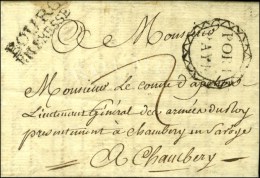 BOURG
EN BRESSE
A Monsieur
PORT
PAYÉ
Monsieur Le comte d'apchon
Lieutenant Général des armées du Roy
presentement a Chambery en Savoye
A Chambery